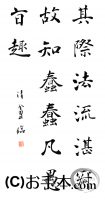 其際法流湛凝
故知蠢蠢凡愚
盲趣
臨
(C)お手本.com